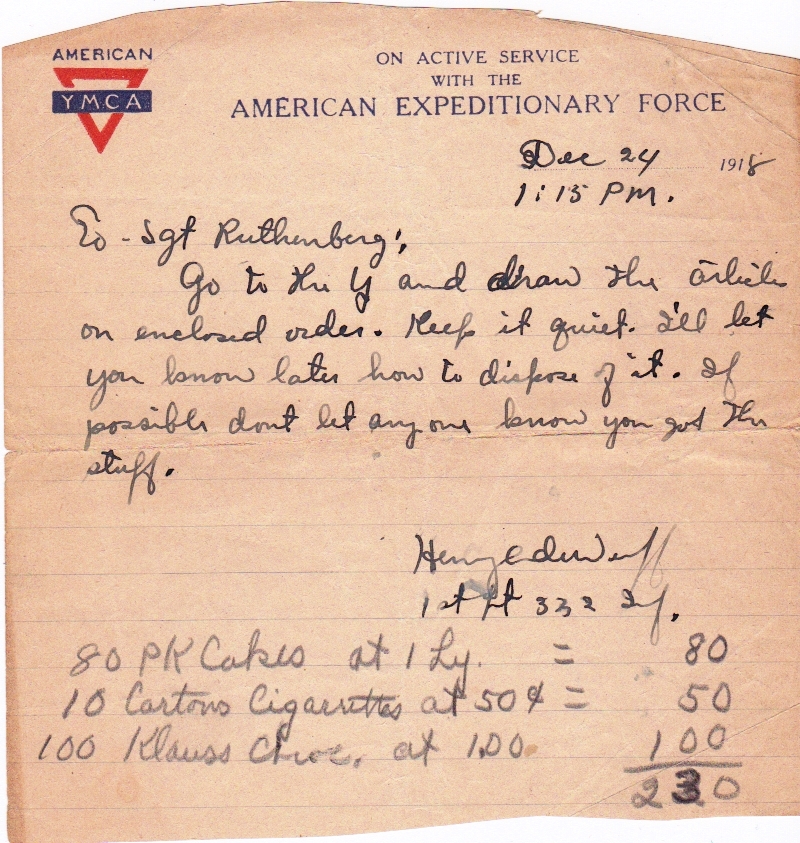 AMERICAN
YMCA
ON ACTIVE SERVICE
WITH THE
AMERICAN EXPEDITIONARY FORCE
Dec 24 1918
1:15 PM.
To - Sgt Ruthenberg:,
Go to the Y and draw the articles
on enclosed order. Keep it quiet. I'll let
you know later how to dispose of it. If
possible dont let anyone know you got the
stuff.
1st Lt 332 Inf.
80 PK Cakes at 1 Ly. = 80
10 Cartons Cigarettes at 50¢ = 50
100 Klauss Choc. at 1.00 100
230